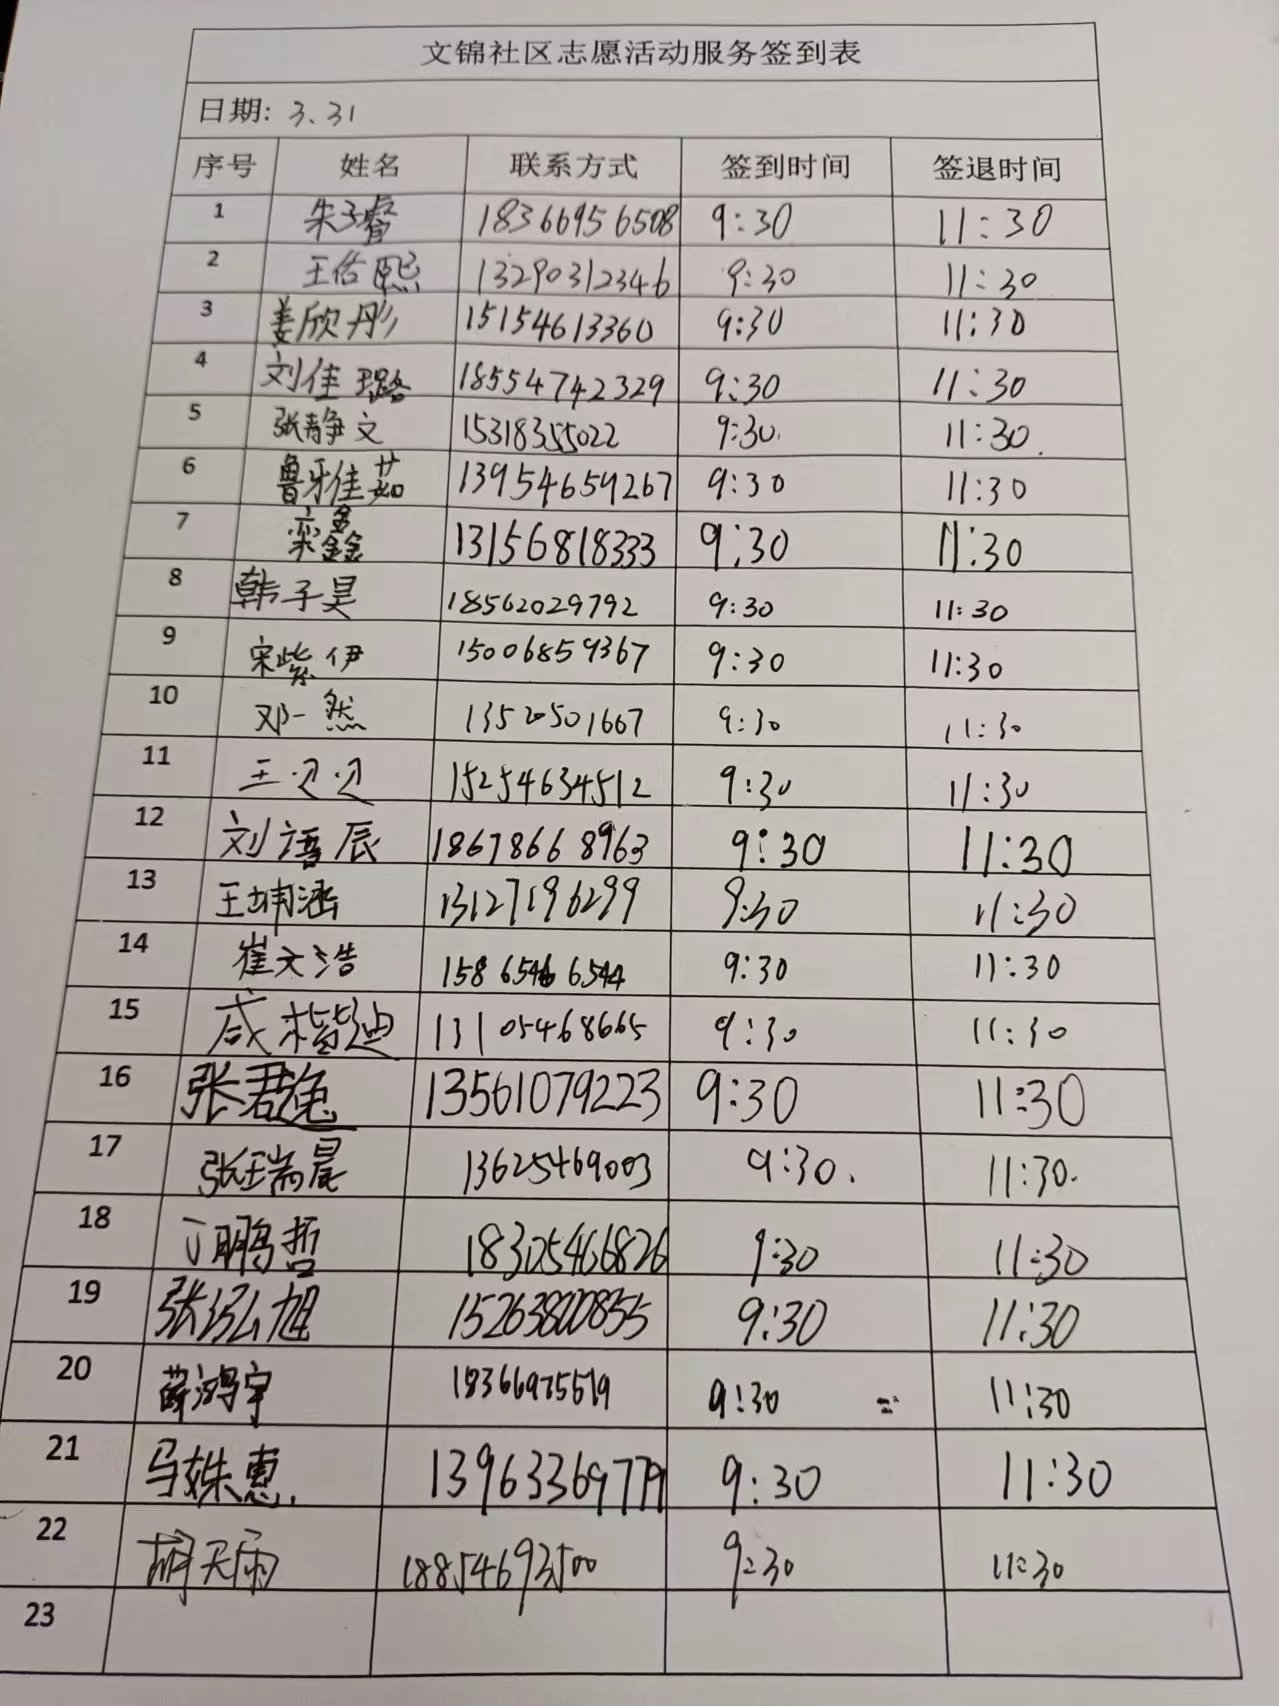 文锦社区志愿活动服务签到表
日期: 3.31
序号 姓名 联系方式 签到时间 签退时间
1 朱子睿 18366956508 9:30 11:30
2 王佑熙 13290312346 9:30 11:30
3 姜欣彤 15154613360 9:30 11:30
4 刘佳璐 18554742329 9:30 11:30
5 张静文 15318355022 9:30. 11:30.
6 鲁雅茹 13954659267 9:30 11:30
7 栾鑫 13156818333 9:30 11:30
8 韩子昊 18562029792 9:30 11:30
9 宋紫伊 15006859367 9:30 11:30
10 邓一然 13520501667 9:30 11:30
11 王贝贝 15254634512 9:30 11:30
12 刘语辰 18678668963 9:30 11:30
13 王坤涵 13127196299 9:30 11:30
14 崔文浩 15865466544 9:30 11:30
15 咸楷迪 13105468665 9:30 11:30
16 张君逸 13561079223 9:30 11:30
17 张瑞晨 13625469003 9:30. 11:30.
18 丁鹏哲 18305466826 9:30 11:30
19 张泓旭 15263800855 9:30 11:30
20 薛鸿宇 18366975519 9:30 11:30
21 马姝惠. 13963369779 9:30 11:30
22 胡天雨 18854693500 9:30 11:30
23